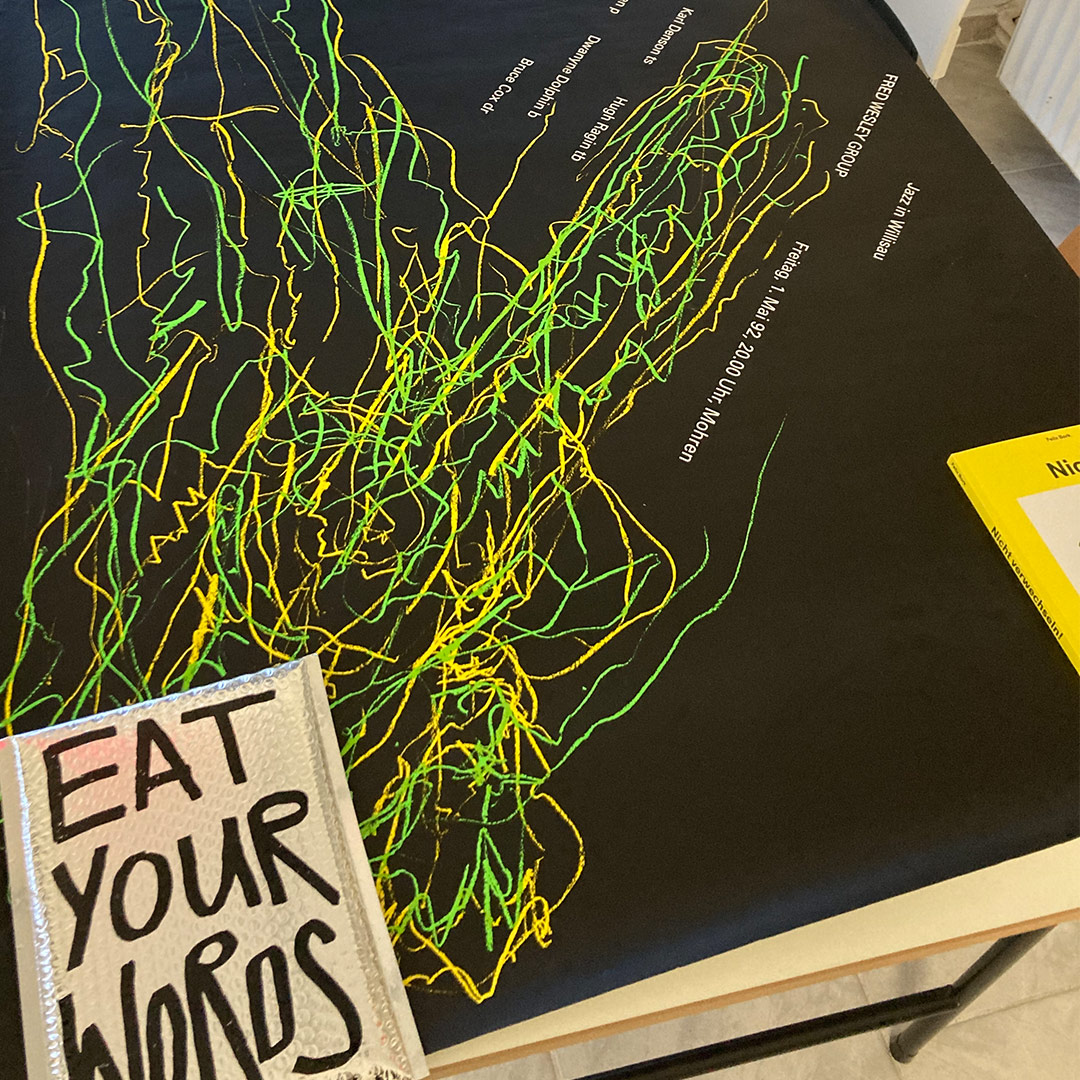 Jazz in Willisau
FRED WESLEY GROUP
Freitag, 1. Mai 92, 20.00 Uhr, Mohren
Karl Denson ts
Hugh Ragin tb
Dwanyne Dolphin b
Bruce Cox dr
EAT
YOUR
WORDS
Nicht verwechseln!